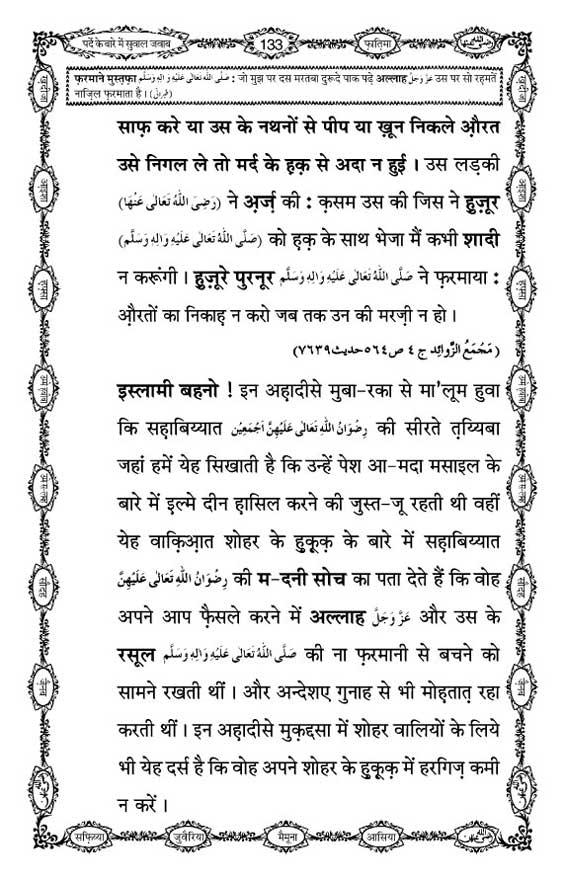 पर्दे के बारे में सुवाल जवाब 133 फ़ातिमा
फ़रमाने मुस्तफ़ा صَلَّى اللهُ تَعَالٰى عَلَيْهِ وَاٰلِهٖ وَسَلَّم : जो मुझ पर दस मरतबा दुरूदे पाक पढ़े अल्लाह عَزَّ وَجَلَّ उस पर सो रहमतें
नाज़िल फ़रमाता है। (طبرانی)
साफ़ करे या उस के नथनों से पीप या ख़ून निकले औ़रत
उसे निगल ले तो मर्द के ह़क़ से अदा न हुई। उस लड़की
(رَضِىَ اللهُ تَعَالٰى عَنْهَا) ने अ़र्ज़ की : क़सम उस की जिस ने हुज़ूर
(صَلَّى اللهُ تَعَالٰى عَلَيْهِ وَاٰلِهٖ وَسَلَّم) को ह़क़ के साथ भेजा मैं कभी शादी
न करूंगी। हुज़ूरे पुरनूर صَلَّى اللهُ تَعَالٰى عَلَيْهِ وَاٰلِهٖ وَسَلَّم ने फ़रमाया :
औ़रतों का निकाह़ न करो जब तक उन की मरज़ी न हो।
(مَجْمَعُ الزَّوَائِد ج ٤ ص ٥٦٤ حديث ٧٦٣٩)
इस्लामी बहनो ! इन अह़ादीसे मुबा-रका से मा'लूम हुवा
कि सह़ाबिय्यात رِضْوَانُ اللهِ تَعَالٰى عَلَيْهِنَّ اَجْمَعِيْن की सीरते त़य्यिबा
जहां हमें येह सिखाती है कि उन्हें पेश आ-मदा मसाइल के
बारे में इल्मे दीन ह़ासिल करने की जुस्त-जू रहती थी वहीं
येह वाक़िआ़त शोहर के हुक़ूक़ के बारे में सह़ाबिय्यात
رِضْوَانُ اللهِ تَعَالٰى عَلَيْهِنَّ की म-दनी सोच का पता देते हैं कि वोह
अपने आप फ़ैसले करने में अल्लाह عَزَّ وَجَلَّ और उस के
रसूल صَلَّى اللهُ تَعَالٰى عَلَيْهِ وَاٰلِهٖ وَسَلَّم की ना फ़रमानी से बचने को
सामने रखती थीं। और अन्देशए गुनाह से भी मोह़तात़ रहा
करती थीं। इन अह़ादीसे मुक़द्दसा में शोहर वालियों के लिये
भी येह दर्स है कि वोह अपने शोहर के हुक़ूक़ में हरगिज़ कमी
न करें।
सफ़िय्या जुवैरिया मैमूना आसिया